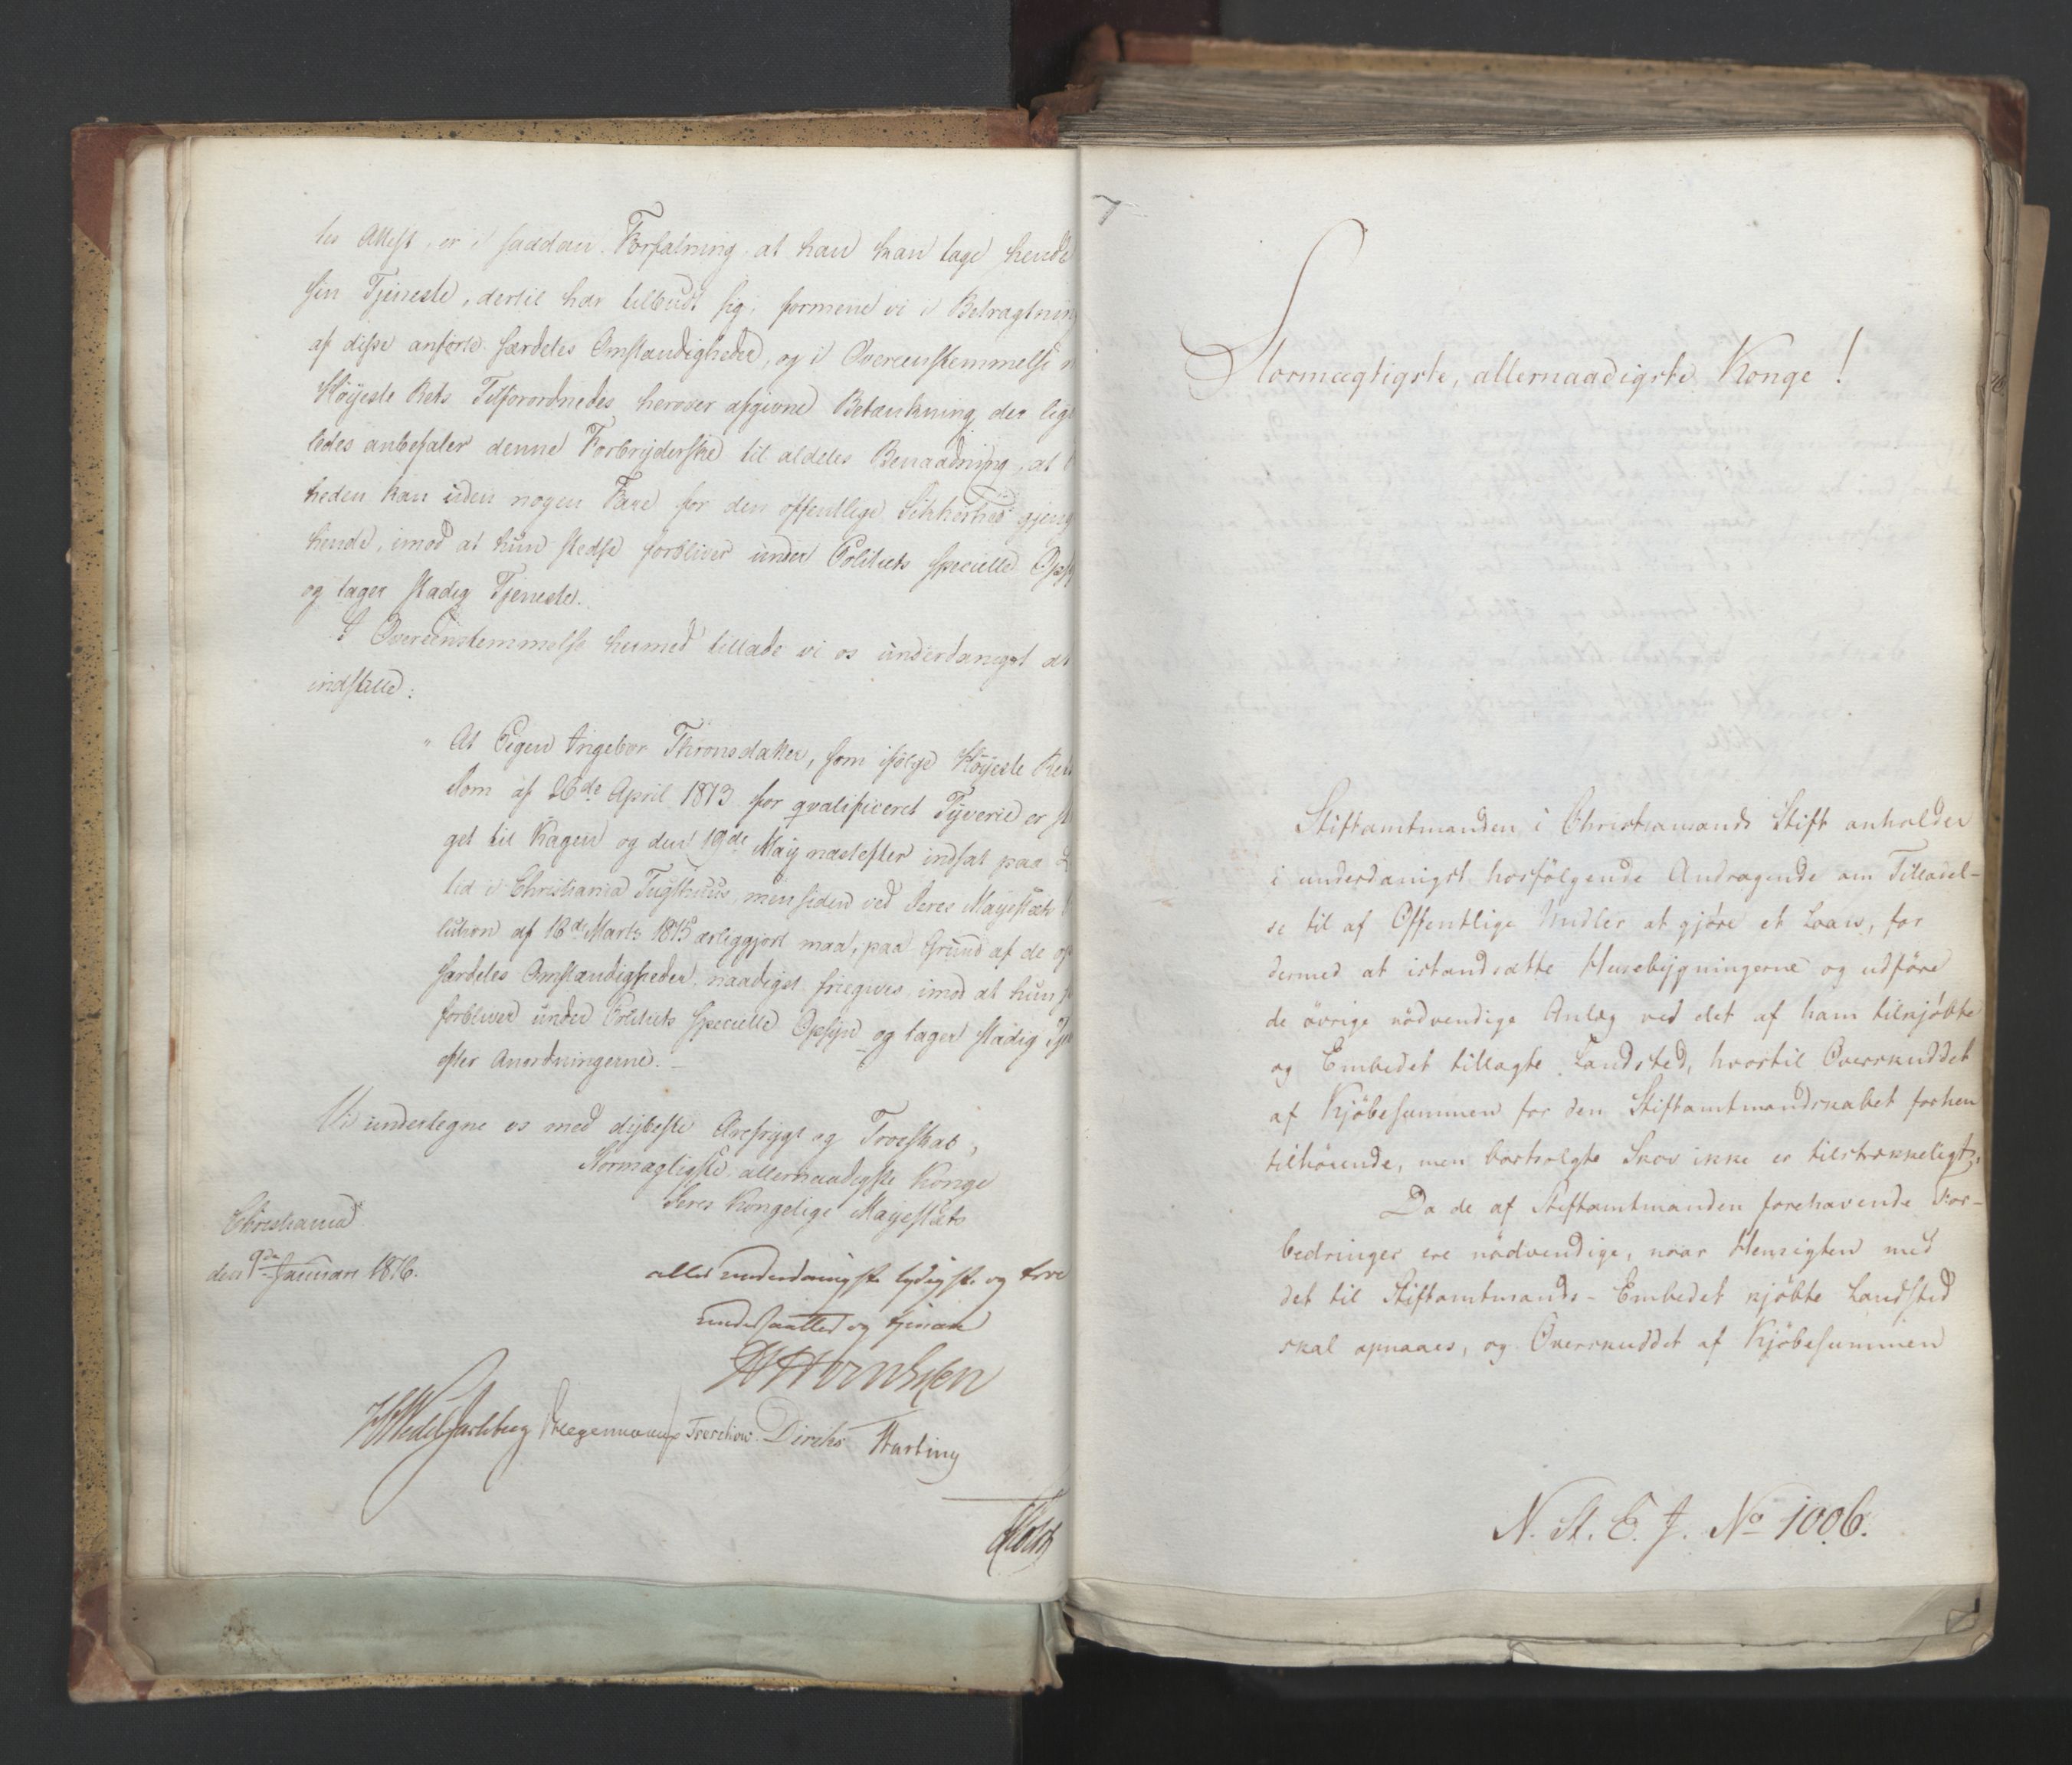 tes Attest, er i saadan Forfatning at han kan tage hende
sin Tjeneste, dertil har tilbudt sig; formene vi i Betragtning
af disse anførte særdeles Omstændigheder, og i Overeenstemmelse
Höyeste Rets Tilforordnedes herover afgivne Betænkning, der lige
ledes anbefaler denne Forbryderske til aldeles Benaadning, at
heden kan uden nogen Fare for den offentlige Sikkerhed gjeng
hende, imod at hun stedse forbliver under Politiets specielle Opsy
og tager stadig Tjeneste.
I Overeenstemmelse hermed tillade vi os underdanigst at
indstille:
" At Pigen Ingebor Thronsdatter, som ifølge Höyeste Ret
dom af 26de April 1813 for qvalificeret Tyverie er
get til Kagen og den 19de May næstefter indsat paa
tid i Christiania Tugthuus, men siden ved Deres Mayestæts
lution af 18de Marts 1815 ærliggjort maa, paa Grund af de
særdeles Omstændigheder, naadigst friegives imod at hun
forbliver under Politiets specielle Opsyn og tager stadig Tje
efter Anordningerne.
Vi undertegne os med dybeste Ærefrygt og Troeskab,
Stormægtigste allernaadigste Konge
Deres Kongelige Mayestæts
Christiania
den 9de Januari 1816.
allerunderdanigste lydigste og troe
undersaatter og tjenere
HHornhjen
Wedel Jarlsberg Hegermann Treschow Diriks Harbiny
Holst
7
Stormægtigste, allernaadigste Konge!
Stiftamtmanden i Christiansands Stift anholder
i underdanigst hosfölgende Andragende om Tilladel-
se til af Offentlige Midler at gjöre et Laan, for
dermed at istandsætte Husebygningerne og udföre
de övrige nödvendige Anlæg ved det af ham tilkjöbte
og Embedet tillagte Landsted, hvortil Overskuddet
af Kjöbesummen for den Stiftamtmandskabet forhen
tilhörende, men bortsolgte Skov ikke er tilstrækkeligt.
Da de af Stiftamtmanden forehavende For-
bedringer ere nödvendige, naar Hensigten med
det til Stiftamtmands-Embedet kjöbte Landsted
skal opnaaes, og Overskuddet af Kjöbesummen
N. St. E. J. No 1006.